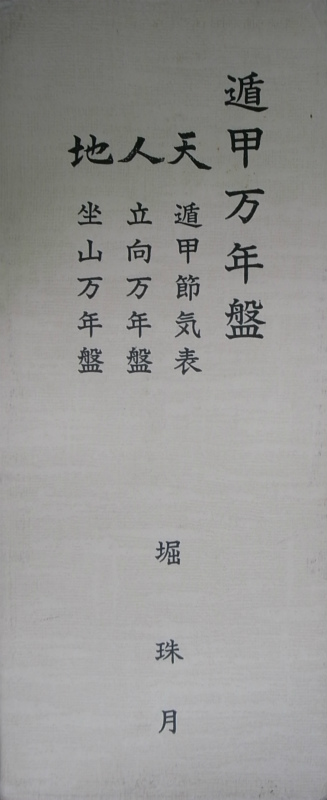 遁甲万年盤
天 遁甲節気表
人 立向万年盤
地 坐山万年盤
堀珠月